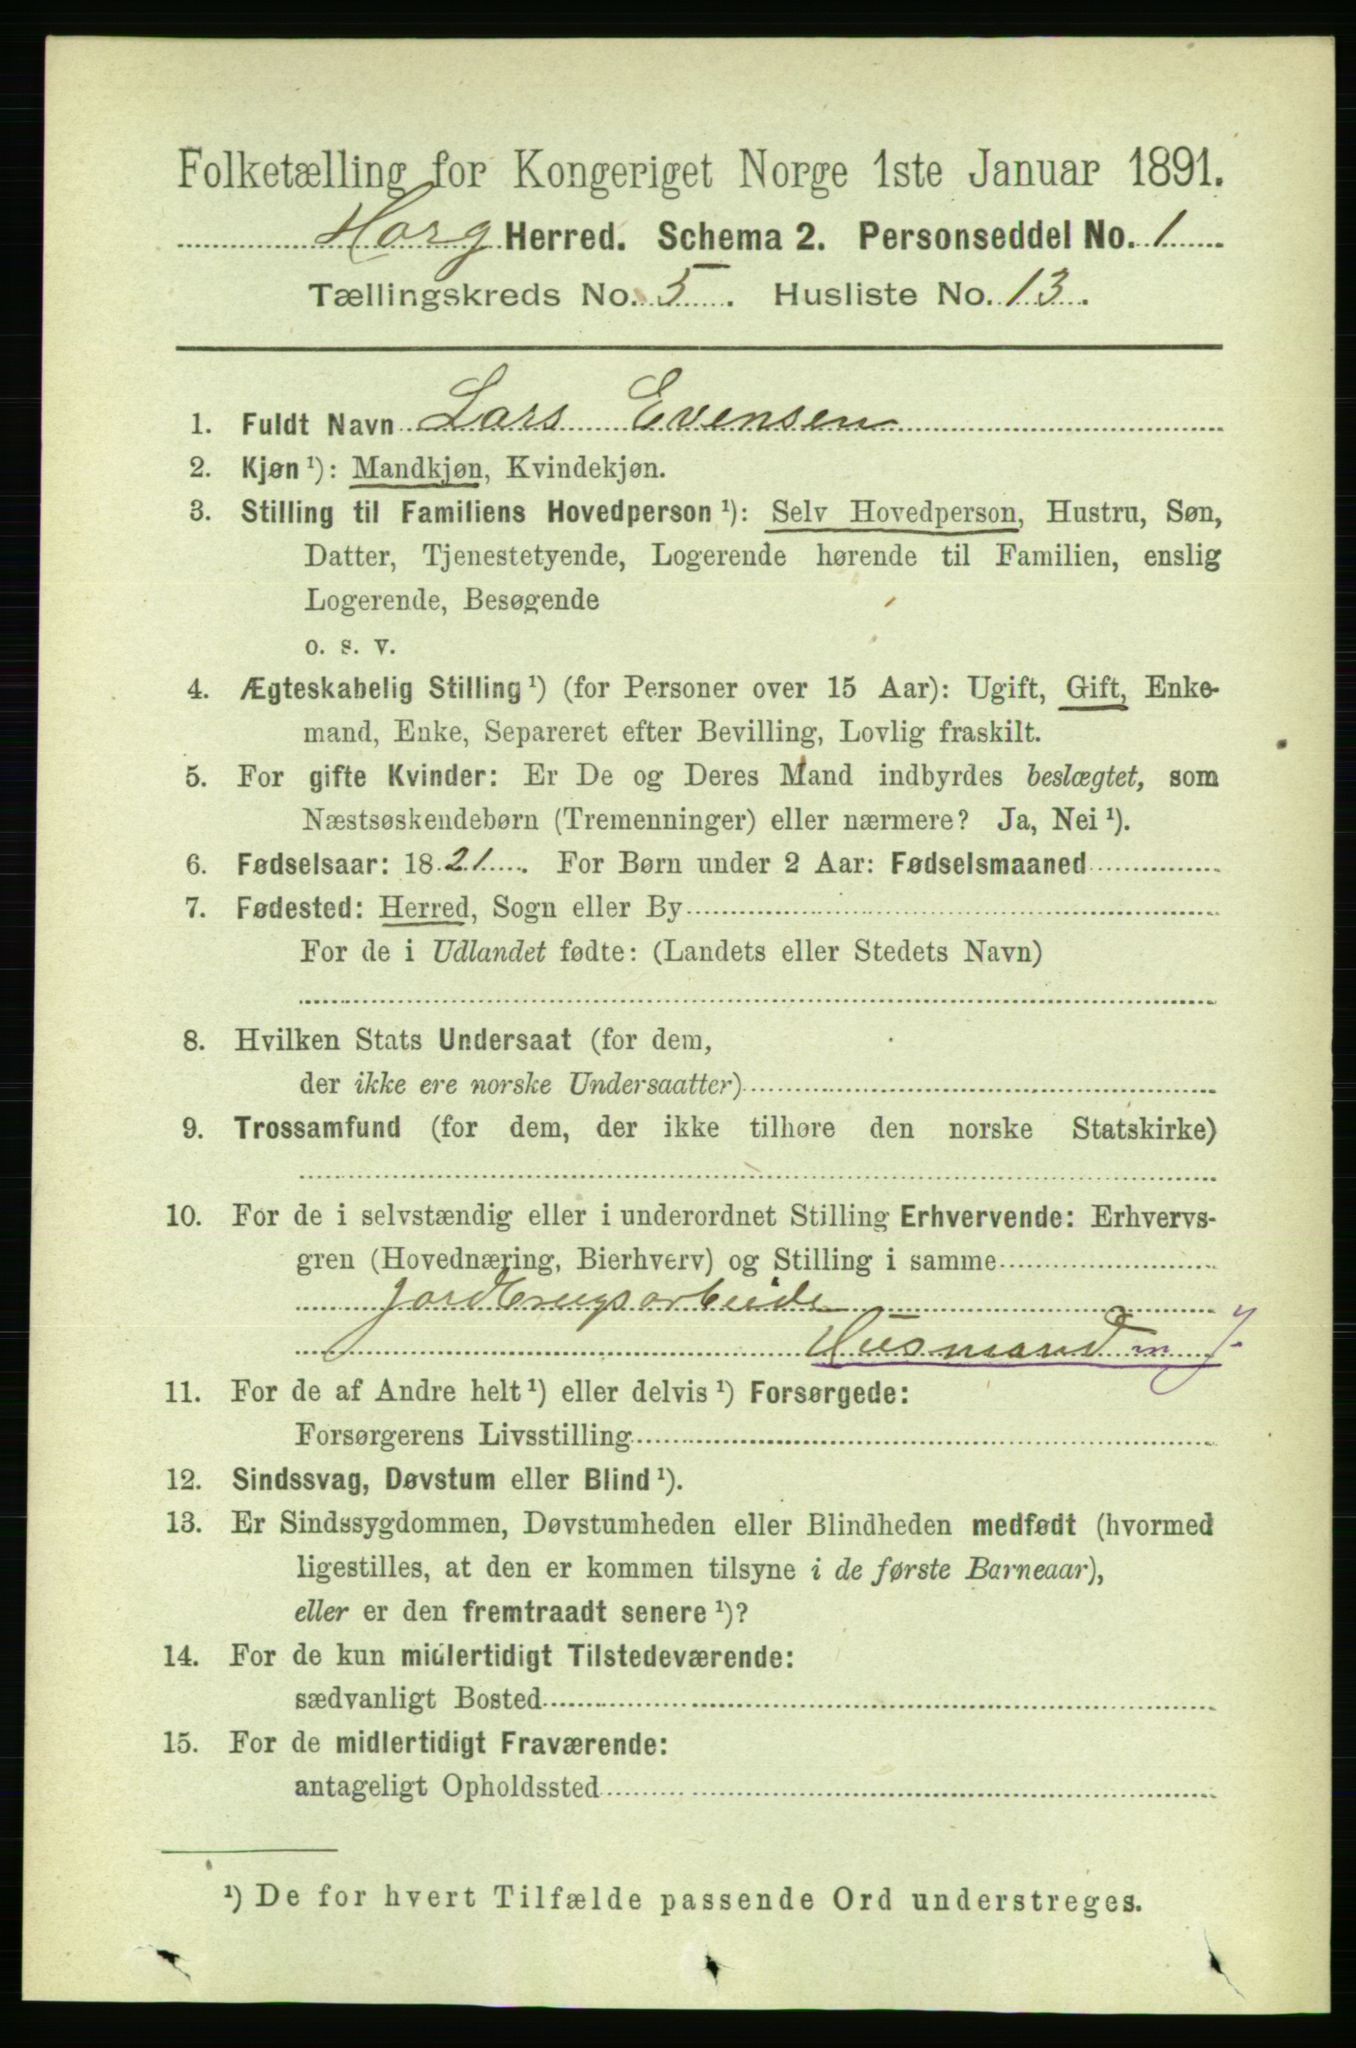 Folketælling for Kongeriget Norge 1ste Januar 1891.
Horg Herred. Schema 2. Personseddel No. 1
Tællingskreds No. 5. Husliste No. 13.
1. Fuldt Navn Lars Evensen
2. Kjøn ¹): Mandkjøn, Kvindekjøn.
3. Stilling til Familiens Hovedperson ¹): Selv Hovedperson, Hustru, Søn,
Datter, Tjenestetyende, Logerende hørende til Familien, enslig
Logerende, Besøgende
o. s. v.
4. Ægteskabelig Stilling ¹) (for Personer over 15 Aar): Ugift, Gift, Enke-
mand, Enke, Separeret efter Bevilling, Lovlig fraskilt.
5. For gifte Kvinder: Er De og Deres Mand indbyrdes beslægtet, som
Næstsøskendebørn (Tremenninger) eller nærmere? Ja, Nei ¹).
6. Fødselsaar: 1821. For Børn under 2 Aar: Fødselsmaaned
7. Fødested: Herred, Sogn eller By
For de i Udlandet fødte: (Landets eller Stedets Navn)
8. Hvilken Stats Undersaat (for dem,
der ikke ere norske Undersaatter)
9. Trossamfund (for dem, der ikke tilhøre den norske Statskirke)
10. For de i selvstændig eller i underordnet Stilling Erhvervende: Erhvervs-
gren (Hovednæring, Bierhverv) og Stilling i samme
Jordbrugsarbeide
Husmand m J.
11. For de af Andre helt ¹) eller delvis ¹) Forsørgede:
Forsørgerens Livsstilling
12. Sindssvag, Døvstum eller Blind ¹).
13. Er Sindssygdommen, Døvstumheden eller Blindheden medfødt (hvormed
ligestilles, at den er kommen tilsyne i de første Barneaar),
eller er den fremtraadt senere ¹)?
14. For de kun midlertidigt Tilstedeværende:
sædvanligt Bosted
15. For de midlertidigt Fraværende:
antageligt Opholdssted
¹) De for hvert Tilfælde passende Ord understreges.